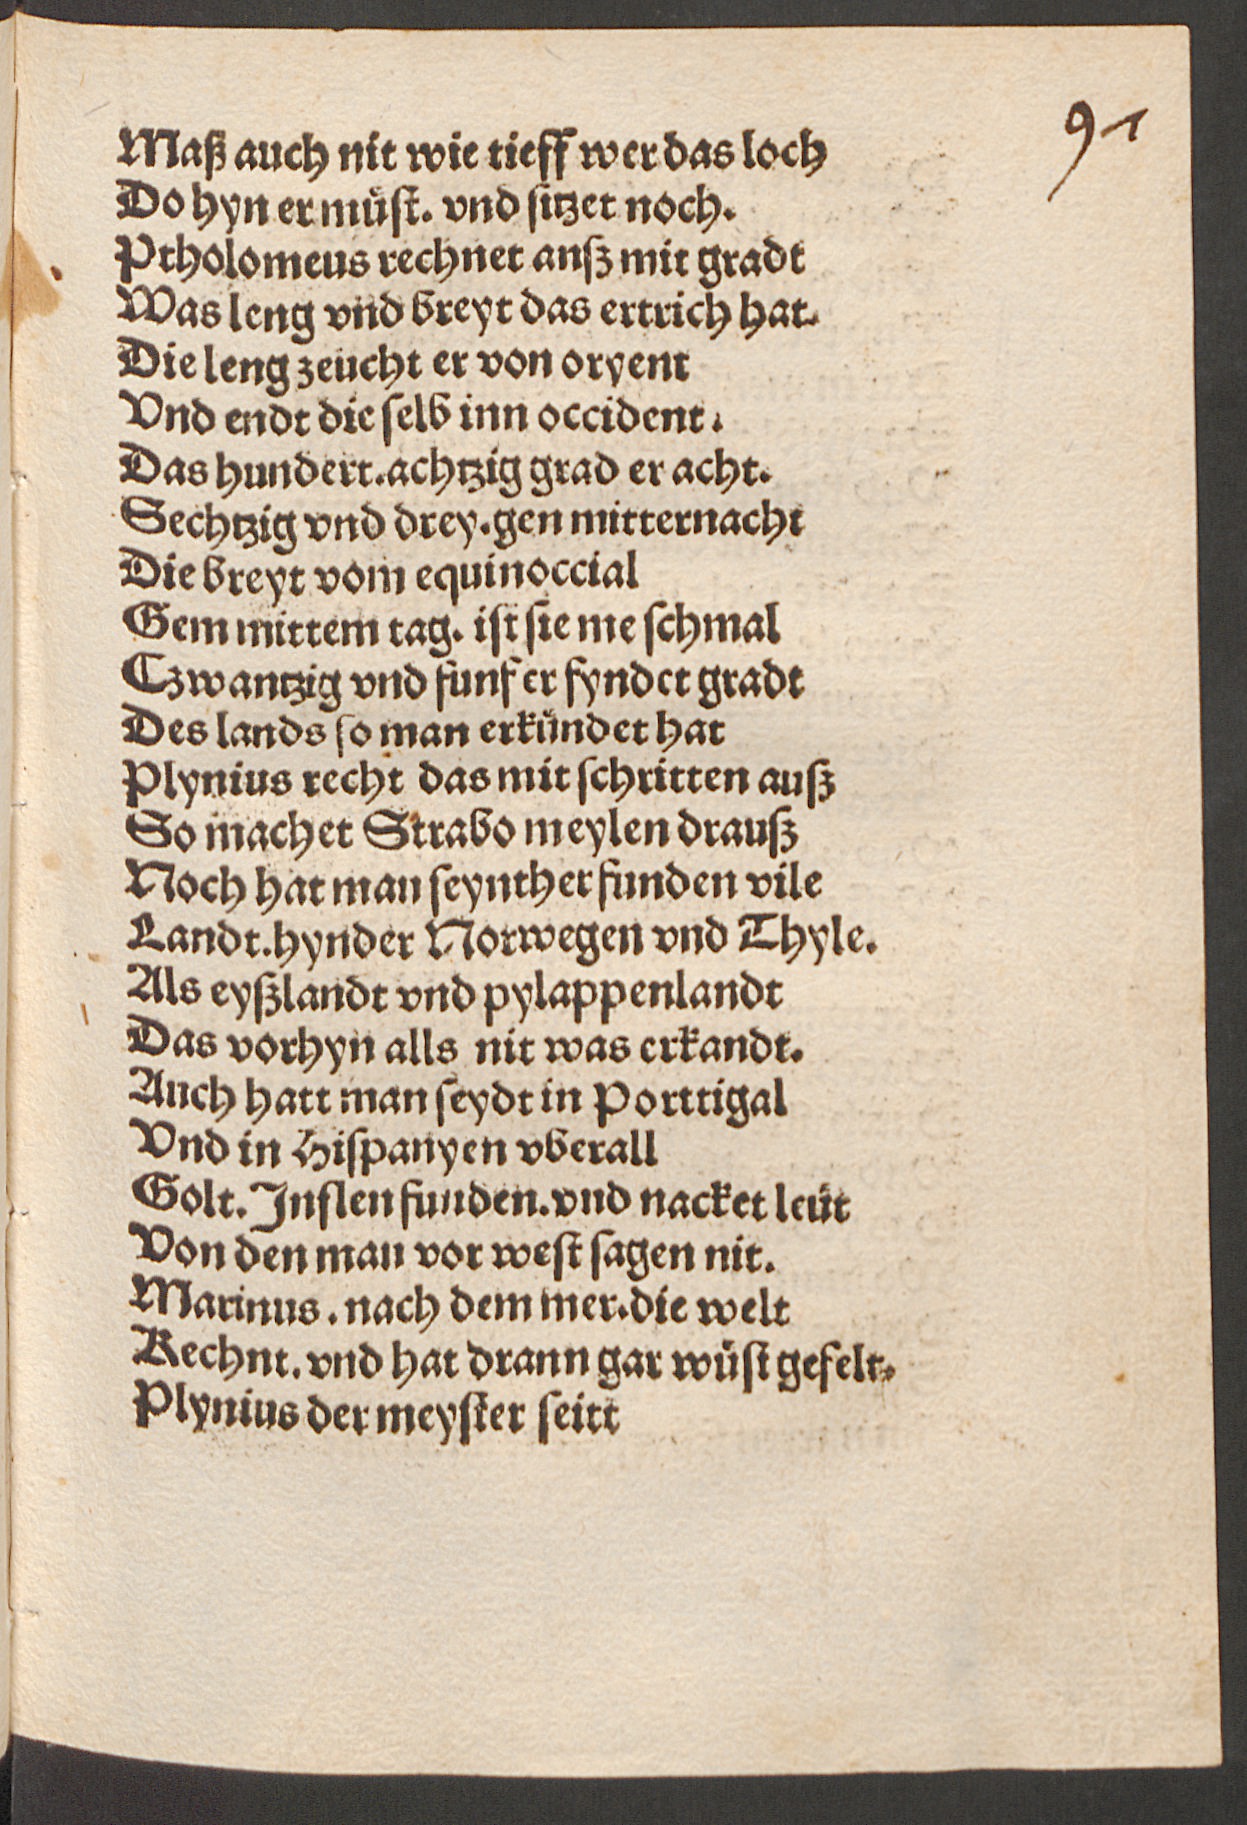 91
Maß auch nit wie tieff wer das loch
Do hyn er muͤst. vnd sitzet noch.
Ptholomeus rechnet ansz mit gradt
Was leng vnd breyt das ertrich hat.
Die leng zeucht er von oryent
Vnd endt die selb inn occident.
Das hundert. achtzig grad er acht.
Sechtzig vnd drey. gen mitternacht
Die breyt vom equinoccial
Gem mittem tag. ist sie me schmal
Czwantzig vnd funf er fyndet gradt
Des lands so man erkuͤndet hat
Plynius recht das mit schritten ausz
So machet Strabo meylen drausz
Noch hat man seynther funden vile
Landt. hynder Norwegen vnd Thyle.
Als eyszlandt vnd pylappenlandt
Das vorhyn alls nit was erkandt.
Auch hatt man seydt in Porttigal
Vnd in Hispanyen vberall
Golt. Inslen funden. vnd nacket leuͤt
Von den man vor west sagen nit.
Marinus. nach dem mer. die welt
Rechnt. vnd hat drann gar wuͤst gefelt.
Plynius der meyster seitt